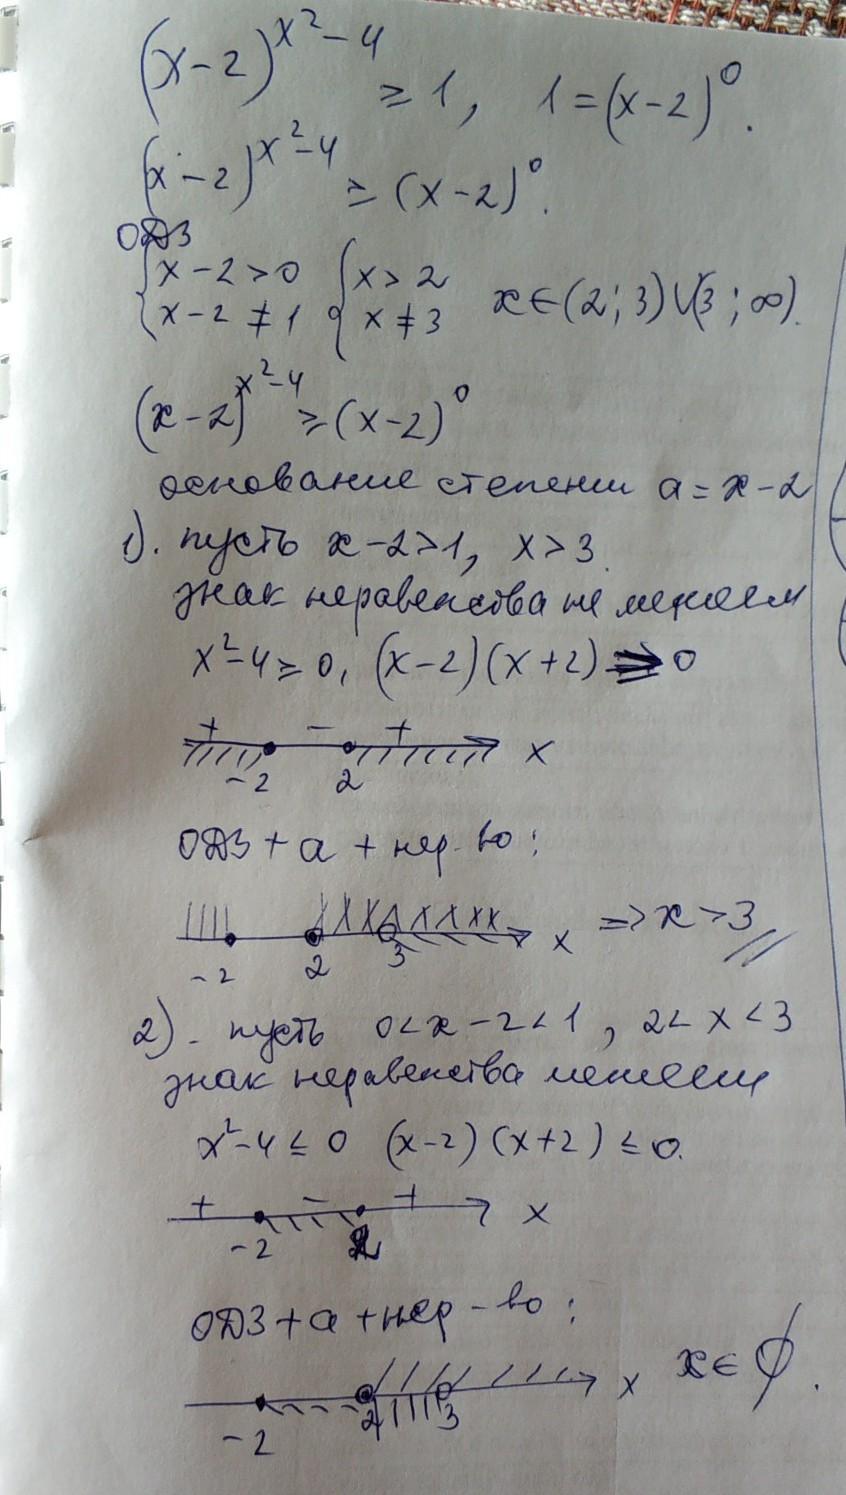 (x-2)^{x²-4} ≥ 1, 1 = (x-2)⁰.
(x-2)^{x²-4} ≥ (x-2)⁰.
ОДЗ
{x-2>0 {x>2
{x-2≠1 {x≠3 x∈(2;3)∪(3;∞).
(x-2)^{x²-4} ≥ (x-2)⁰
основание степени a = x-2
1). пусть x-2>1, x>3.
знак неравенства не меняем
x²-4 ≥ 0, (x-2)(x+2) ≥ 0
+ - +
-2 2 x
ОДЗ + a + нер-во:
-2 2 3 x => x>3
2). пусть 0<x-2<1, 2<x<3
знак неравенства меняем
x²-4 ≤ 0 (x-2)(x+2) ≤ 0.
+ - +
-2 2 x
ОДЗ + a + нер-во:
-2 2 3 x x∈∅.